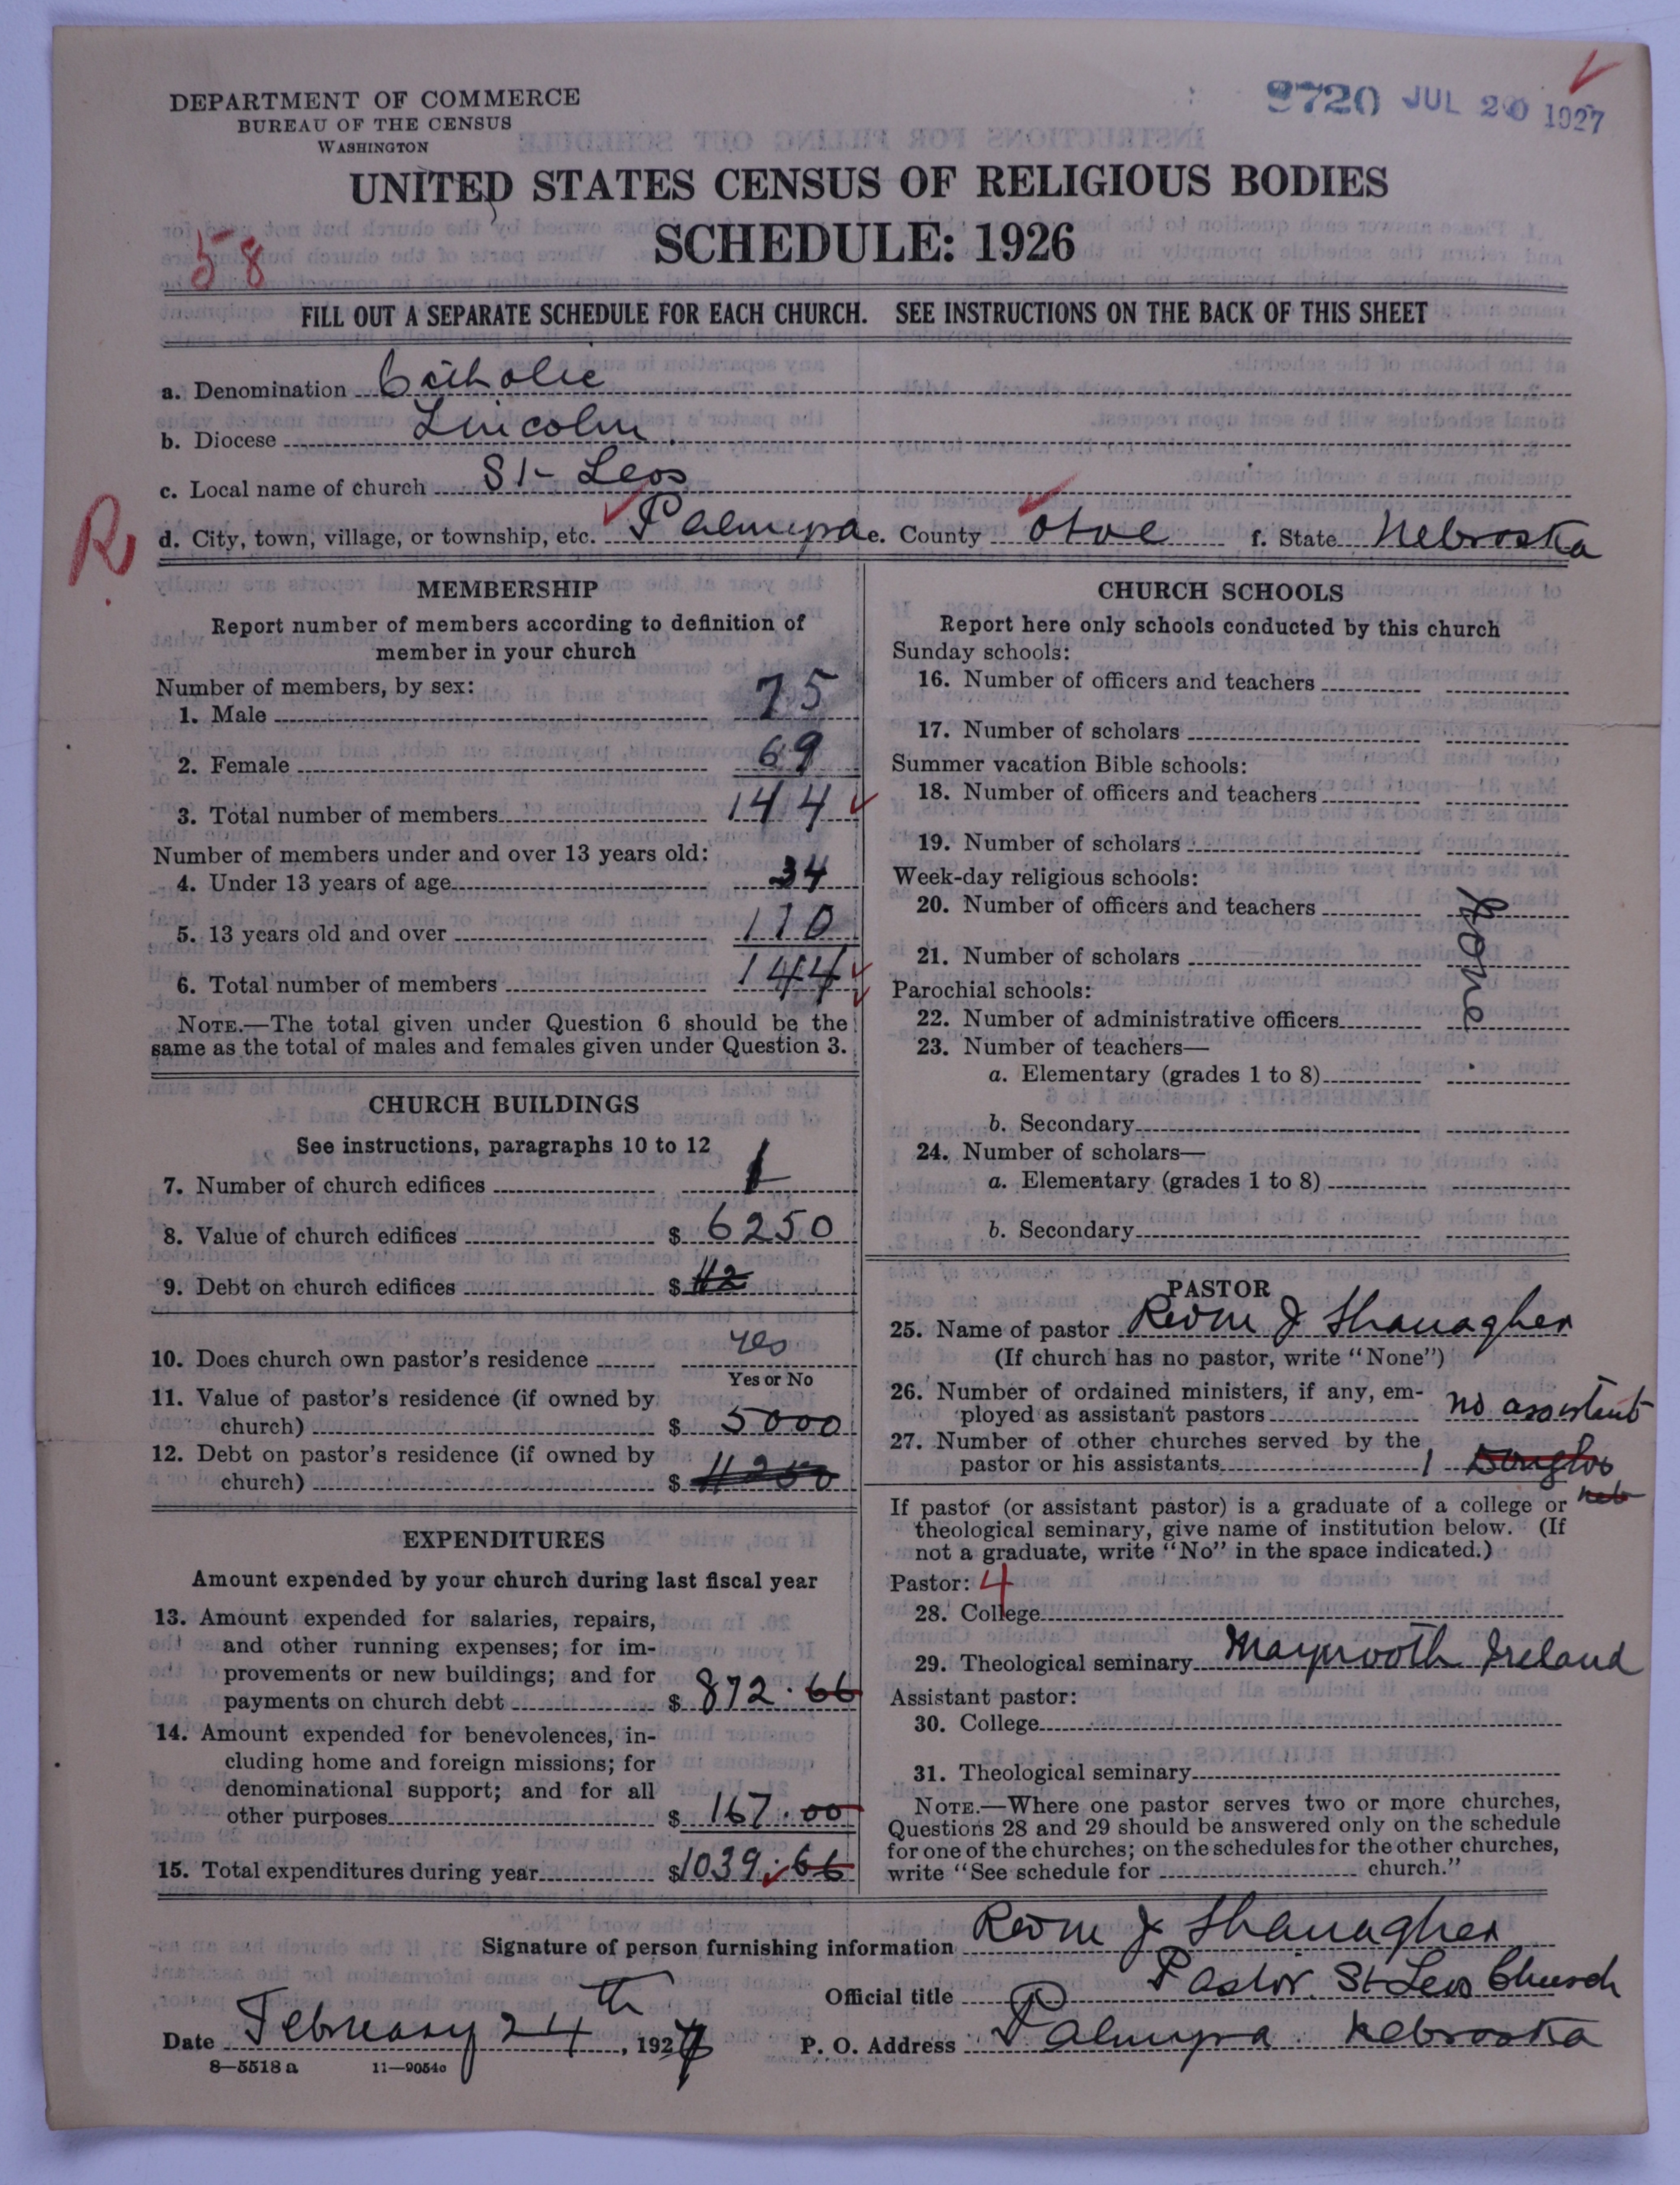 DEPARTMENT OF COMMERCE
BUREAU OF THE CENSUS
WASHINGTON
9720 JUL 20 1927
UNITED STATES CENSUS OF RELIGIOUS BODIES
SCHEDULE: 1926
58
FILL OUT A SEPARATE SCHEDULE FOR EACH CHURCH. SEE INSTRUCTIONS ON THE BACK OF THIS SHEET
a. Denomination Catholic
b. Diocese Lincoln.
c. Local name of church St- Leos
R
d. City, town, village, or township, etc. Palmyra e. County Otoe f. State Nebraska
MEMBERSHIP
Report number of members according to definition of
member in your church
Number of members, by sex:
1. Male 75
2. Female 69
3. Total number of members 144
Number of members under and over 13 years old:
4. Under 13 years of age 34
5. 13 years old and over 110
6. Total number of members 144
NOTE.—The total given under Question 6 should be the
same as the total of males and females given under Question 3.
CHURCH BUILDINGS
See instructions, paragraphs 10 to 12
7. Number of church edifices 1
8. Value of church edifices $ 6250
9. Debt on church edifices $
10. Does church own pastor's residence yes
Yes or No
11. Value of pastor's residence (if owned by
church) $ 5000
12. Debt on pastor's residence (if owned by
church) $
EXPENDITURES
Amount expended by your church during last fiscal year
13. Amount expended for salaries, repairs,
and other running expenses; for im-
provements or new buildings; and for
payments on church debt $ 872.66
14. Amount expended for benevolences, in-
cluding home and foreign missions; for
denominational support; and for all
other purposes $ 167.00
15. Total expenditures during year $1039.66
CHURCH SCHOOLS
Report here only schools conducted by this church
Sunday schools:
16. Number of officers and teachers
17. Number of scholars
Summer vacation Bible schools:
18. Number of officers and teachers
19. Number of scholars
Week-day religious schools:
20. Number of officers and teachers
21. Number of scholars
None
Parochial schools:
22. Number of administrative officers
23. Number of teachers—
a. Elementary (grades 1 to 8)
b. Secondary
24. Number of scholars—
a. Elementary (grades 1 to 8)
b. Secondary
PASTOR
25. Name of pastor J Shanagher
(If church has no pastor, write "None")
26. Number of ordained ministers, if any, em-
ployed as assistant pastors no assistent
27. Number of other churches served by the
pastor or his assistants 1 Douglas
Neb
If pastor (or assistant pastor) is a graduate of a college or
theological seminary, give name of institution below. (If
not a graduate, write "No" in the space indicated.)
Pastor: 4
28. College
29. Theological seminary Maynooth Ireland
Assistant pastor:
30. College
31. Theological seminary
NOTE.—Where one pastor serves two or more churches,
Questions 28 and 29 should be answered only on the schedule
for one of the churches; on the schedules for the other churches,
write "See schedule for church."
Signature of person furnishing information J Shanagher
Official title Pastor. St Leos Church
Date February 24th, 1927 P. O. Address Palmyra. Nebraska
8—5518 a 11—9054c